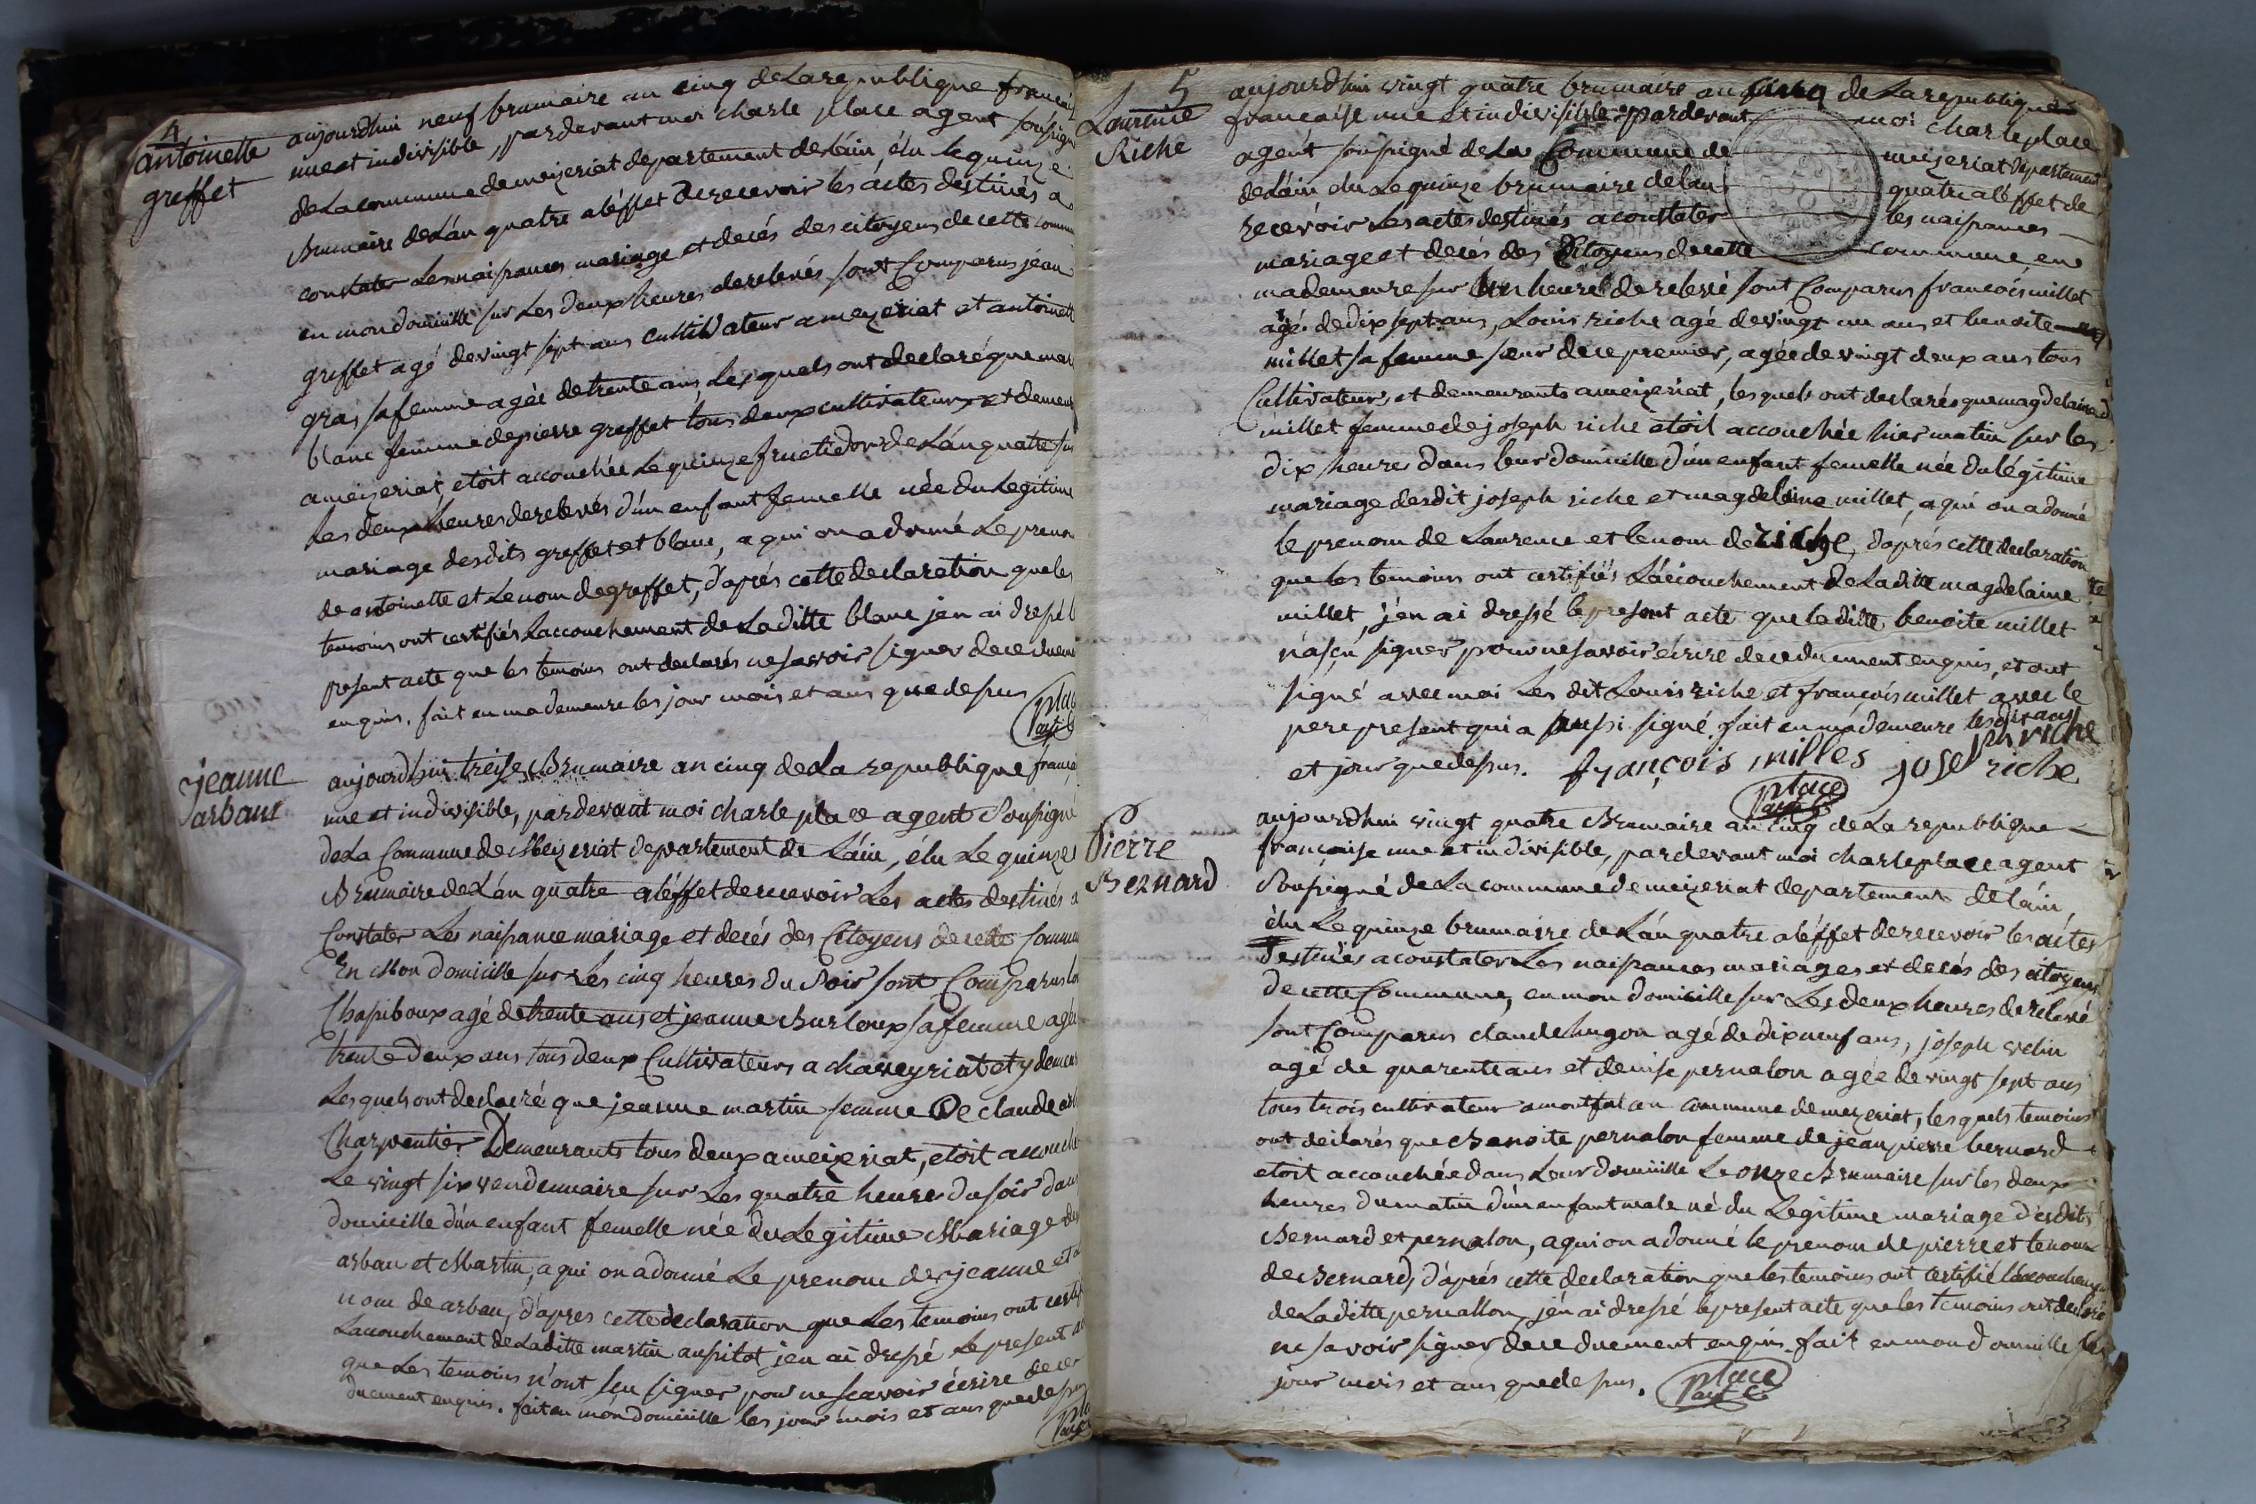 4
antoinette
greffet
aujourdhui neuf brumaire an cinq de La republique françai
une et indivisible, pardevant moi charle place agent soussigné
de La commune de meizeriat departement de Láin, élu le quinze
Brumaire de Lán quatre a léffet de recevoir les áctes destinés a
constater Les naissances mariage et decés des citoyens de cette commu
en mon domicille sur Les deux heures de relevés sont Comparus jean
greffet agé de vingt sept ans cultivateur a mezeriat et antoinett
gras sa femme agée de trente ans Lesquels ont declaré que
blanc femme de pierre greffet tous deux cultivateurs et demeu
a meizeriat, etoit accouchée Le quinze fructidor de Lán quatre sur
Les deux heures de relevés d'un enfant femelle née du Legitime
mariage desdits greffet et blanc, a qui on a donné Le preno
de antoinette et Le nom de greffet, d'aprés cette declaration que les
temoins ont certifiés L'accouchement de Laditte blanc jen ai dressé l
present acte que les temoins ont declarés ne savoir signer de ce duem
enquis. fait en ma demeure les jour mois et ans que dessus
place
jeanne
arban
aujourdhui treise Brumaire an cinq de La republique françai
une et indivisible, pardevant moi charle place agent Soussigné
de La Commune de Meizeriat departement de Láin, élu Le quinze
Brumaire de Lán quatre a léffet de recevoir Les actes destinés a
Constater Les naissance mariage et decés des Citoyens de cette Commu
En Mon domicille sur Les cinq heures du Soir sont Comparus
Chapiboux agé de trente ans et jeanne Burloux sa femme agé
trente deux ans tous deux Cultivateurs a chaveyriat et y demeu
Lesquels ont declaré que jeanne martin femme De claude
Charpentier Demeurants tous deux a meizeriat, etoit accouché
Le vingt six vendemiaire sur Les quatre heures du soir dans
domicille d'un enfant femelle née du Legitime Mariage
arban et Martin, a qui on a donné Le prenom de jeanne et
nom de arban, d'apres cette declaration que Les temoins ont certif
L'accouchement de Laditte martin aussitot jen ai dressé Le present
que Les temoins n'ont sçu signer pour ne sçavoir écrire de ce
duement enquis. fait en mon domicille les jour mois et ans que dessus
5
Laurence
Riche
aujourdhui vingt quatre brumaire an cinq de La republique
française une et indivisible pardevant moi charle place
agent soussigné de La Commune de meizeriat departement
de Láin élu Le quinze brumaire de lan quatre a léffet de
recevoir Les actes destinés a constater les naissances
mariage et decés des Citoyens de cette commune en
ma demeure sur heure de relevé sont Comparus francois millet
agé de dix sept ans, Louis riche agé de vingt un ans et benoite
millet sa femme sœur de ce premier, agée de vingt deux ans tous
Cultivateurs et demeurants a meizeriat, lesquels ont declarés que magdelaine
millet femme de joseph riche etoit accouchée hier matin sur les
dix heures dans leur domicille d'un enfant femelle née du légitime
mariage desdit joseph riche et magdelaine millet, a qui on a donné
le prenom de Laurence et le nom de riche, d'aprés cette declaration
que les temoins ont certifiés L'accouchement de Laditte magdelaine
millet, j'en ai dressé le present acte que laditte benoite millet
n'a sçu signer pour ne savoir écrire de ce duement enquis, et ont
signé avec moi Les dit Louis riche et francois millet avec le
pere present qui a aussi signé, fait en ma demeure les an
et jour que dessus. françois milles joseph riche
riche
place
Pierre
Bernard
aujourdhui vingt quatre Brumaire an cinq de La republique
française une et indivisible, pardevant moi charle place agent
Soussigné de La commune de meizeriat departement de láin
élu Le quinze brumaire de Lán quatre a léffet de recevoir les actes
destinés a constater Les naissances mariages et decés des citoyens
de cette Commune, en mon domicille sur Les deux heures de relevé
sont Comparus claude hugon agé de dix neuf ans, joseph velin
agé de quarente ans et denise pernalon agée de vingt sept ans
tous trois cultivateur a montfalcon commune de mezeriat, lesquels temoins
ont declarés que Benoite pernalon femme de jean pierre bernard
etoit accouchée dans Leur domicille Le onze Brumaire sur les deux
heures du matin d'un enfant male né du Legitime mariage desdits
Bernard et pernalon, a qui on a donné le prenom de pierre et le nom
de Bernard, d'aprés cette declaration que les temoins ont certifié l'accouchement
de Laditte pernallon, jén ai dressé le present acte que les temoins ont declaré
ne savoir signer de ce duement enquis. fait en mon domicille les
jour mois et ans que dessus.
place